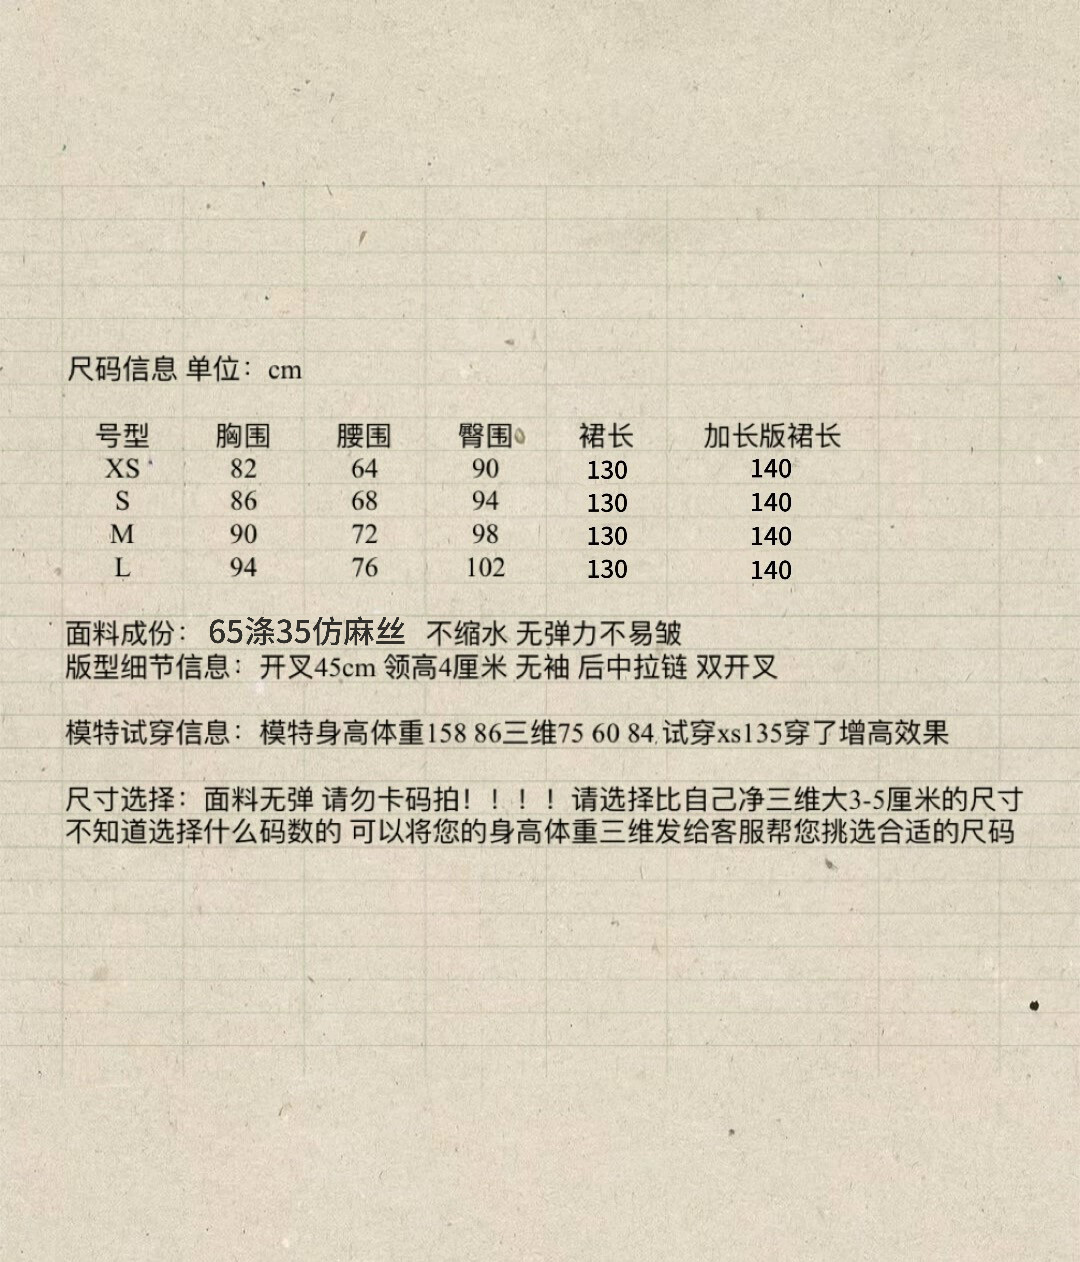 尺码信息 单位：cm
号型 胸围 腰围 臀围 裙长 加长版裙长
XS 82 64 90 130 140
S 86 68 94 130 140
M 90 72 98 130 140
L 94 76 102 130 140
面料成份： 65涤35仿麻丝 不缩水 无弹力不易皱
版型细节信息：开叉45cm 领高4厘米 无袖 后中拉链 双开叉
模特试穿信息：模特身高体重158 86三维75 60 84 试穿xs135穿了增高效果
尺寸选择：面料无弹 请勿卡码拍！！！！请选择比自己净三维大3-5厘米的尺寸
不知道选择什么码数的 可以将您的身高体重三维发给客服帮您挑选合适的尺码